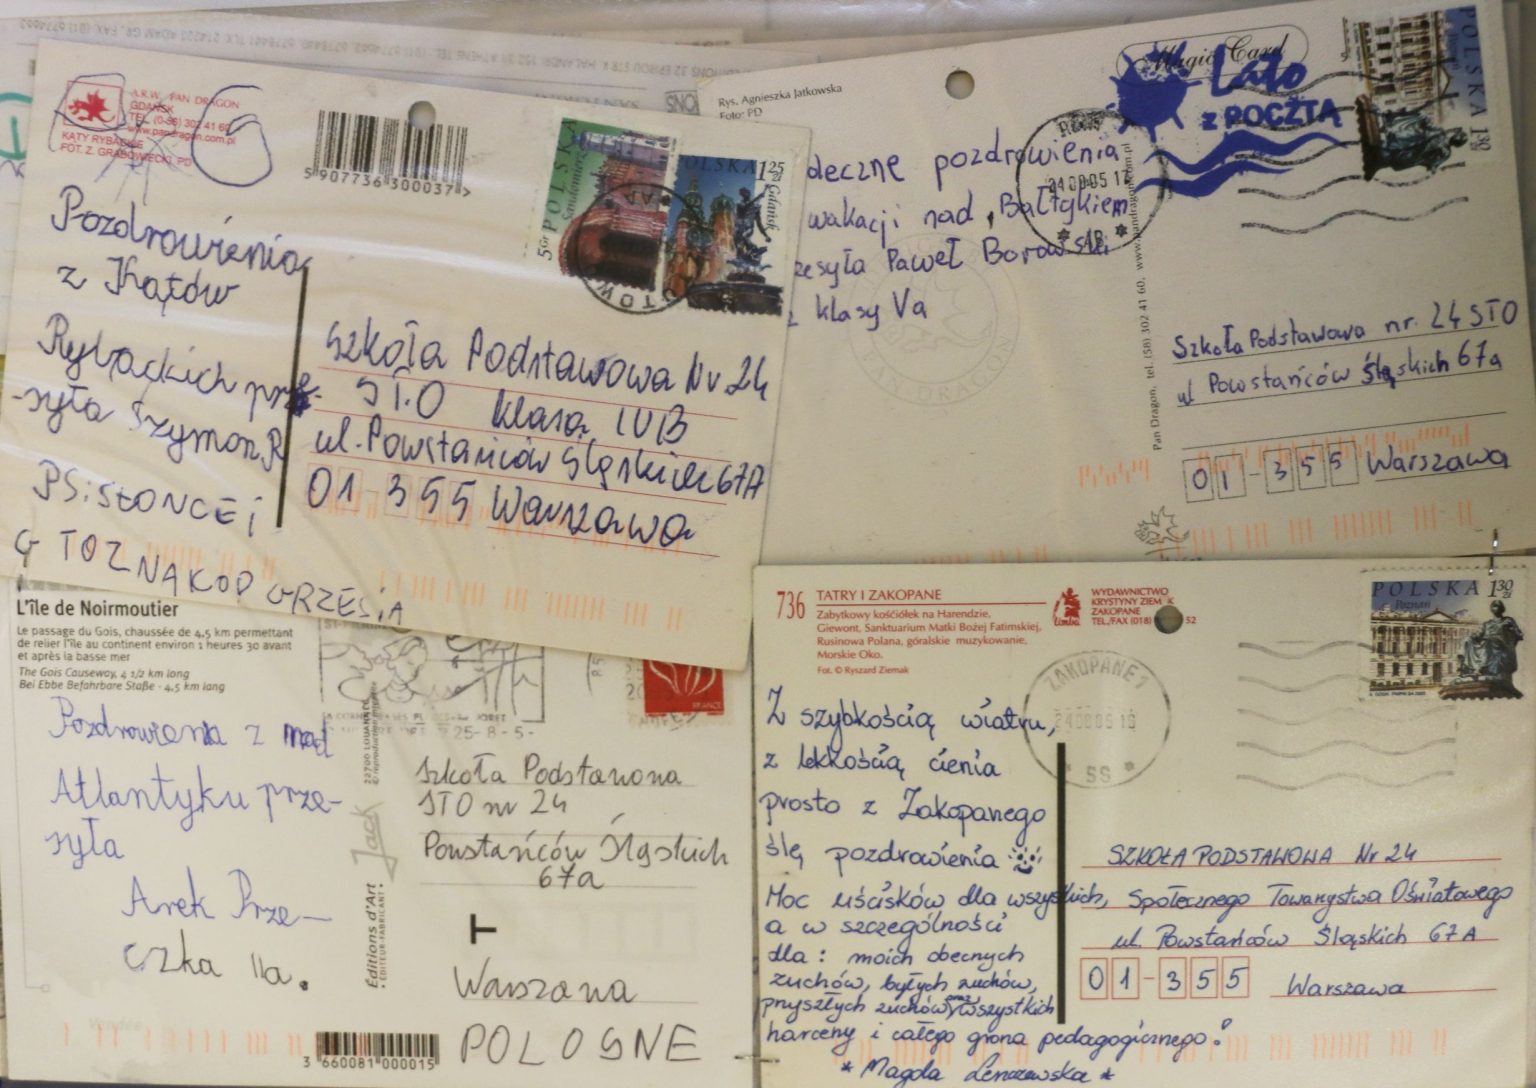 A.R.W. PAN DRAGON
GDAŃSK
TEL. (0-58) 302 41 60
www.pandragon.com.pl
KĄTY RYBACKIE
FOT. Z. GRABOWIECKI, PD
5 907736 300037 >
POLSKA
Sandomierz
5 Gr
POLSKA 1,25 zł
Gdańsk
Pozdrowienia
z Kątów
Rybackich prze-
-syła Szymon R
PS: SŁONCE i
G TOZ NA KOP GRZESiA
Szkoła Podstawowa Nr 24
STO klasa IVB
ul. Powstańców Śląskich 67A
01-355 Warszawa
Rys. Agnieszka Jatkowska
Foto: PD
Magic Card
Lato
z POCZTĄ
POLSKA 1,30
deczne pozdrowienia
wakacji nad Bałtykiem
zesyła Paweł Borowski
z klasy Va
Pan Dragon, tel. (58) 302 41 60, www.pandragon.com.pl
Szkoła Podstawowa nr. 24 STO
ul Powstańców Śląskich 67a
01-355 Warszawa
L'île de Noirmoutier
Le passage du Gois, chaussée de 4,5 km permettant
de relier l'île au continent environ 1 heures 30 avant
et après la basse mer
The Gois Causeway, 4 1/2 km lang
Bei Ebbe Befahrbare Staße - 4,5 km lang
FRANCE
25-8-5-
Pozdrowienia z nad
Atlantyku prze-
syła
Arek Prze-
czka IIa.
Jack
Éditions d'Art
ÉDITEUR-FABRICANT
Szkoła Podstawowa
STO nr 24
Powstańców Śląskich
67a
Warszawa
POLOGNE
3 660081 000015
736 TATRY I ZAKOPANE
Zabytkowy kościółek na Harendzie,
Giewont, Sanktuarium Matki Bożej Fatimskiej,
Rusinowa Polana, góralskie muzykowanie,
Morskie Oko.
Fot. © Ryszard Ziemak
WYDAWNICTWO
KRYSTYNY ZIEMAK
ZAKOPANE
TEL./FAX (018) 52
ZAKOPANE 1
POLSKA 1,30 zł
Poznań
Z szybkością wiatru,
z lekkością cienia
prosto z Zakopanego
ślę pozdrowienia
Moc uścisków dla wszystkich,
a w szczególności
dla: moich obecnych
zuchów, byłych zuchów,
przyszłych zuchów oraz wszystkich
harcerzy i całego grona pedagogicznego!
* Magda Lenczewska *
SZKOŁA PODSTAWOWA Nr 24
Społecznego Towarzystwa Oświatowego
ul. Powstańców Śląskich 67A
01-355 Warszawa